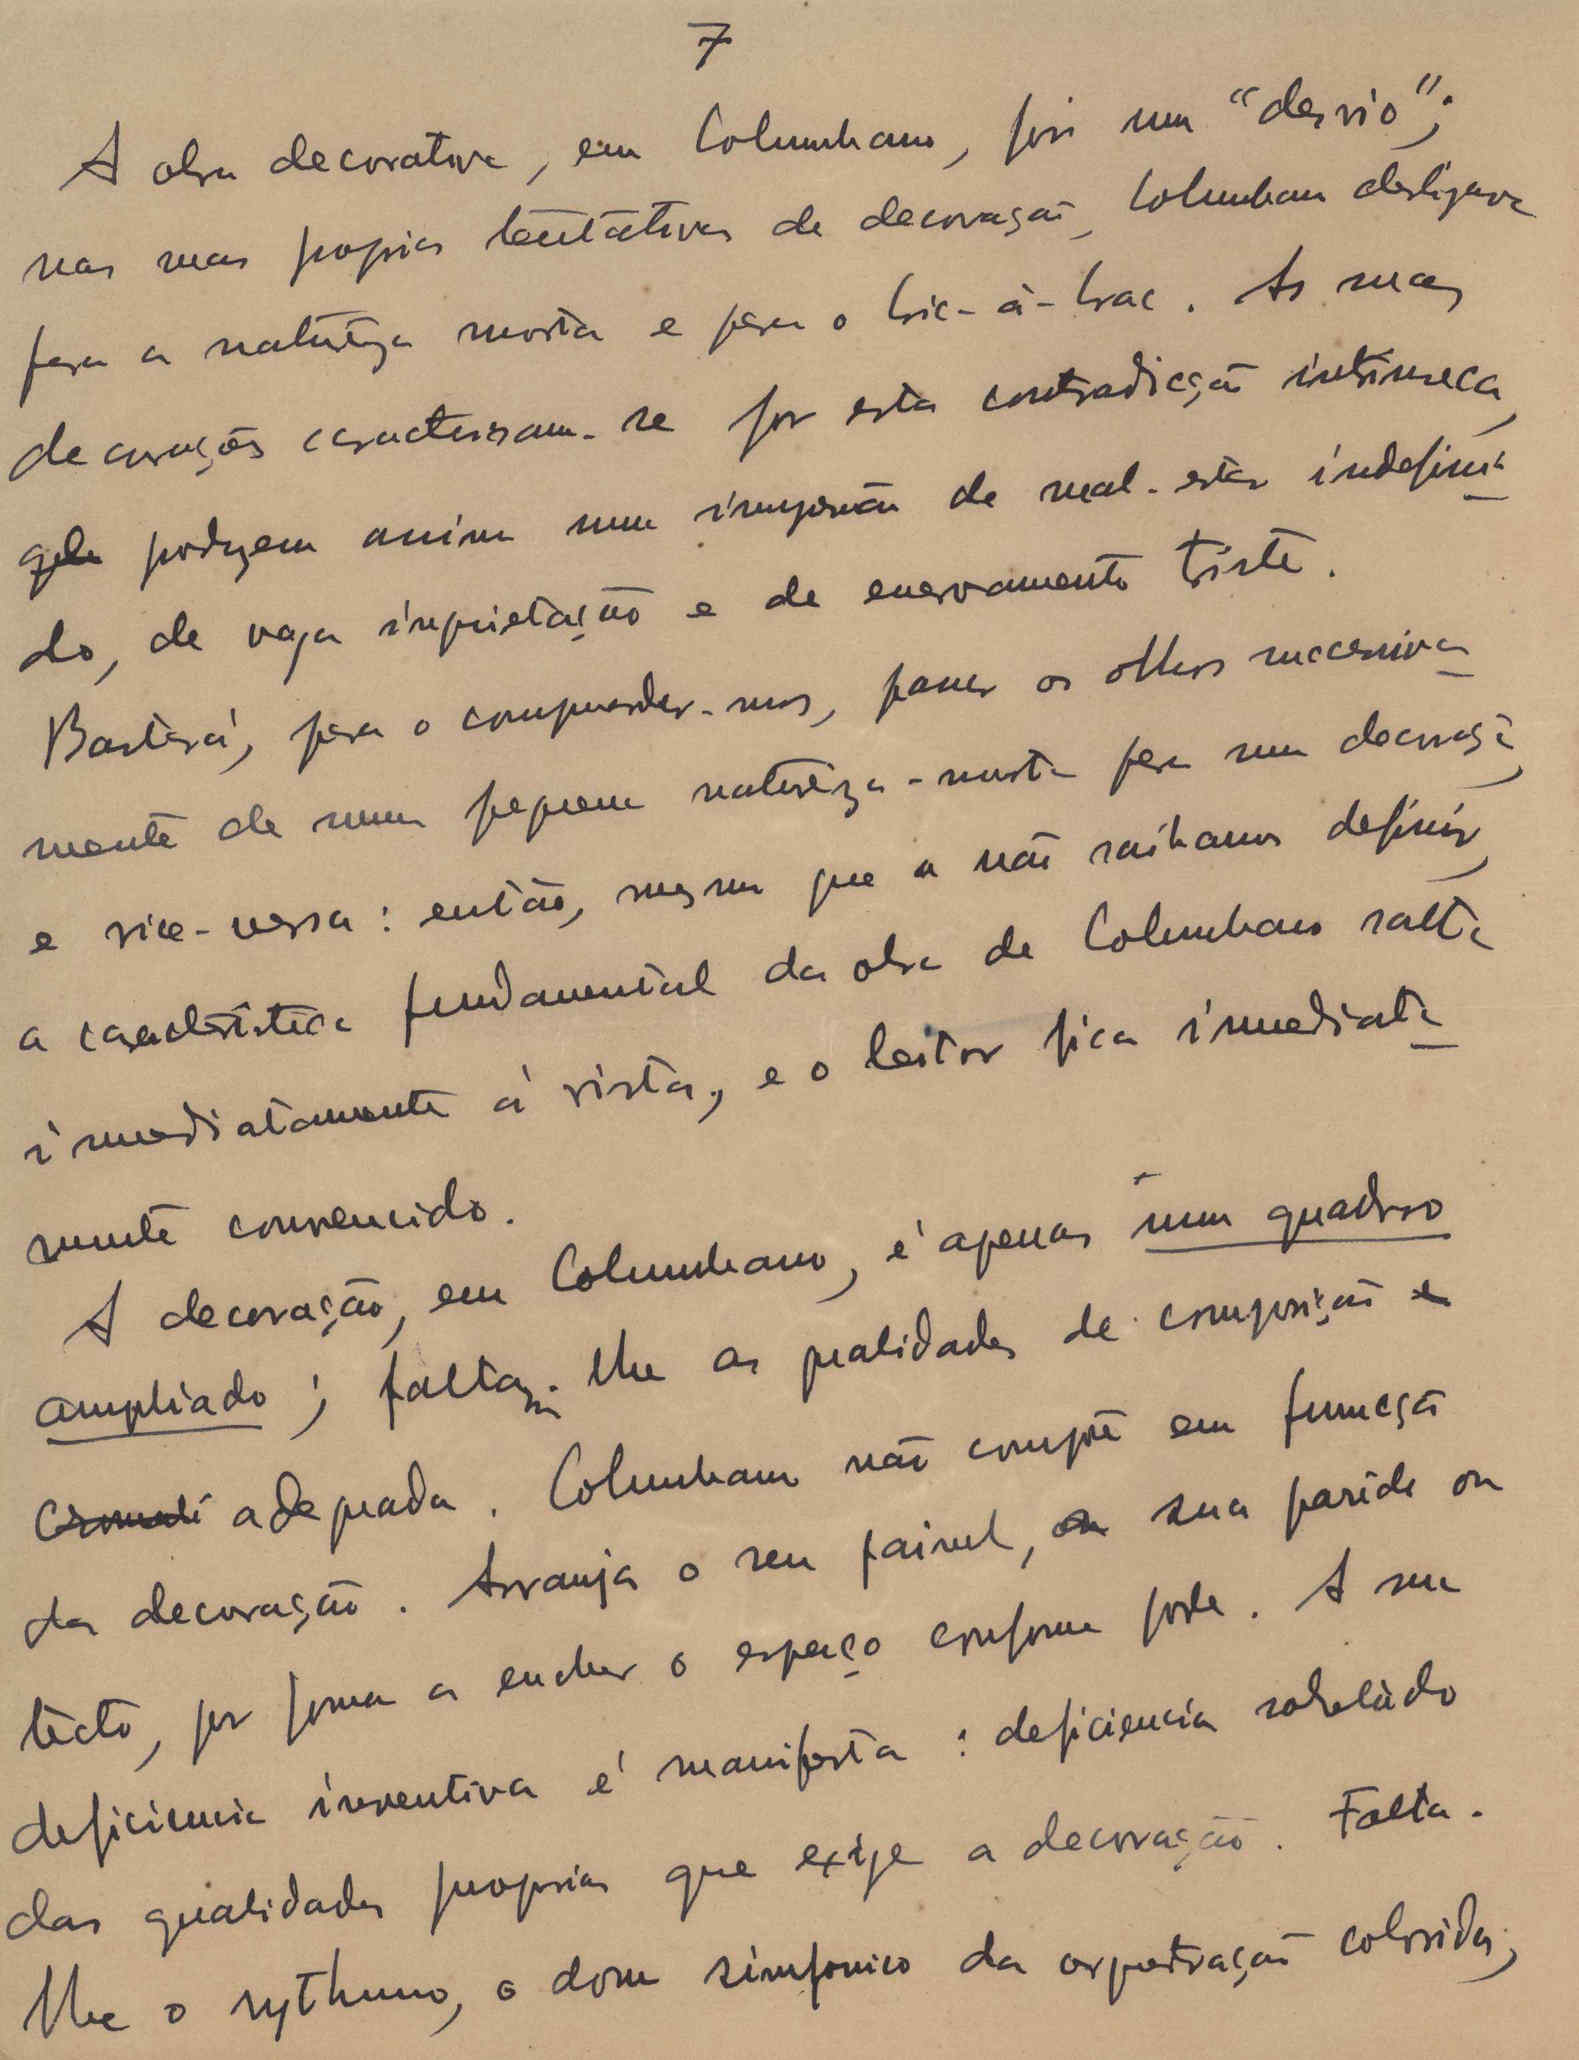 7
A obra decorativa, em Columbano, foi um "desvio";
nas suas proprias tentativas de decoração, Columbano deslizava
para a natureza morta e para o bric-à-brac. As suas
decorações caracterisam-se por esta contradicção intrinseca,
que produzem assim uma impressão de mal-estar indefini-
do, de vaga inquietação e de enervamento triste.
Bastará, para o comprender-mos, passar os olhos successiva-
mente de uma pequena natureza-morta para uma decoração,
e vice-versa: então, mesmo que a não saibamos definir,
a caracteristica fundamental da obra de Columbano salta
immediatamente á vista, e o leitor fica immediata-
mente convencido.
A decoração, em Columbano, é apenas um quadro
ampliado; faltam-lhe as qualidades de composição
adequada. Columbano não compõe em funcção
da decoração. Arranja o seu painel, sua paride ou
tecto, por forma a encher o espaço conforme pode. A sua
deficiencia inventiva é manifesta: deficiencia sobretudo
das qualidades proprias que exige a decoração. Falta-
lhe o rythmo, o dom simfonico da orquestração colorida,